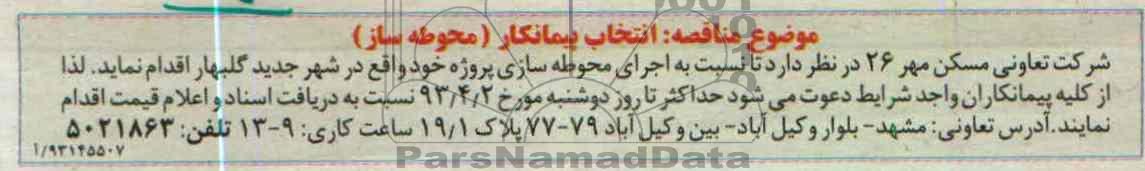 موضوع مناقصه: انتخاب پیمانکار (محوطه ساز)
شرکت تعاونی مسکن مهر ۲۶ در نظر دارد تا نسبت به اجرای محوطه سازی پروژه خود واقع در شهر جدید گلبهار اقدام نماید. لذا
از کلیه پیمانکاران واجد شرایط دعوت می شود حداکثر تا روز دوشنبه مورخ ۹۳/۴/۲ نسبت به دریافت اسناد و اعلام قیمت اقدام
نمایند. آدرس تعاونی: مشهد- بلوار وکیل آباد- بین وکیل آباد ۷۹-۷۷ پلاک ۱۹/۱ ساعت کاری: ۹-۱۳ تلفن: ۵۰۲۱۸۶۳
۱/۹۳۱۴۵۵۰۷
ParsNamadData